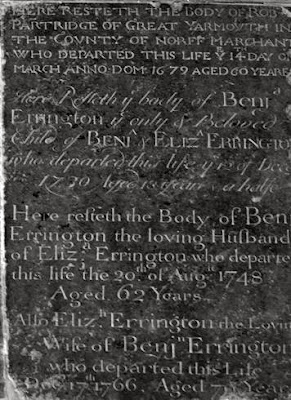 HERE RESTETH THE BODY OF ROB
PARTRIDGE OF GREAT YARMOUTH IN
THE COUNTY OF NORFF MERCHANT
WHO DEPARTED THIS LIFE Yᵉ 14 DAY OF
MARCH ANNO DOM 1679 AGED 60 YEARES
Here Resteth y body of Benjⁿ
Errington y only & Beloved
Child of BENJⁿ & ELIZᴬ ERRINGTON
who departed this life y of Dec
Aged years & a halfe
Here resteth the Body of Benj
Errington the loving Husband
of Elizᵃ Errington who departed
this life the 20 of Augˢᵗ 1748
Aged 62 Years
Also Elizᵃ Errington the Lovin
Wife of Benjⁿ Errington
who departed this Life
Decʳ 17ᵗʰ 1766. Aged Year